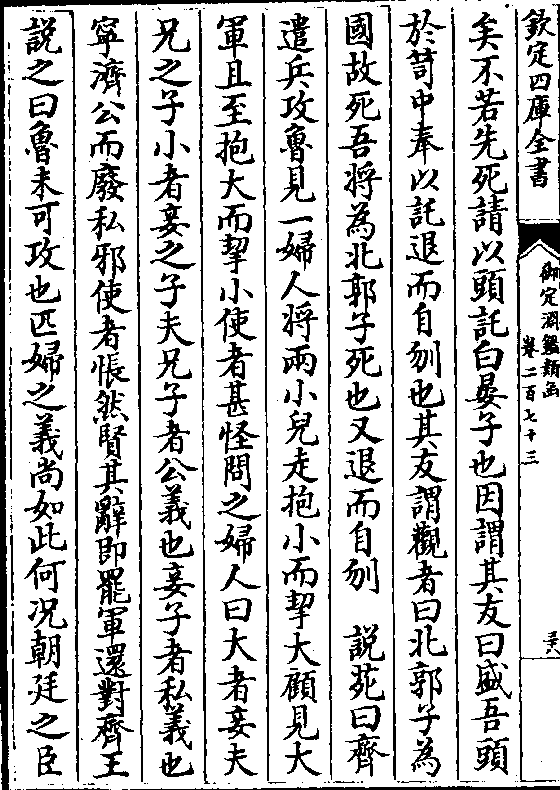 欽定四庫全書
御定淵鑑類函
卷二百七十三
矣不若先死請以頭託白晏子也因謂其友曰盛吾頭
於笥中奉以託退而自刎也其友謂觀者曰北郭子為
國故死吾將為北郭子死也又退而自刎　說苑曰齊
遣兵攻魯見一婦人將兩小兒走抱小而挈大顧見大
軍且至抱大而挈小使者甚怪問之婦人曰大者妾夫
兄之子小者妾之子夫兄子者公義也妾子者私義也
寧濟公而廢私邪使者悵然賢其辭即罷軍還對齊王
說之曰魯未可攻也匹婦之義尚如此何况朝廷之臣